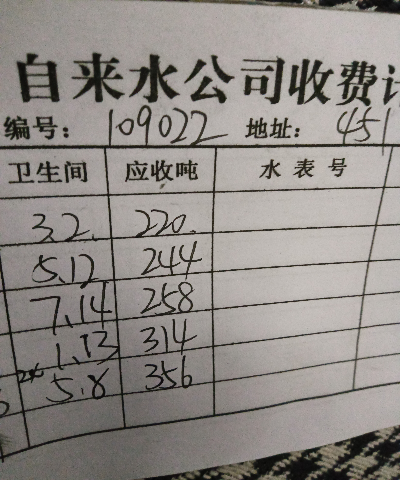 自来水公司收费
编号: 109022 地址: 451
卫生间 应收吨 水表号
3.2. 220.
5.12 244
7.14 258
1.13 314
5.8 356